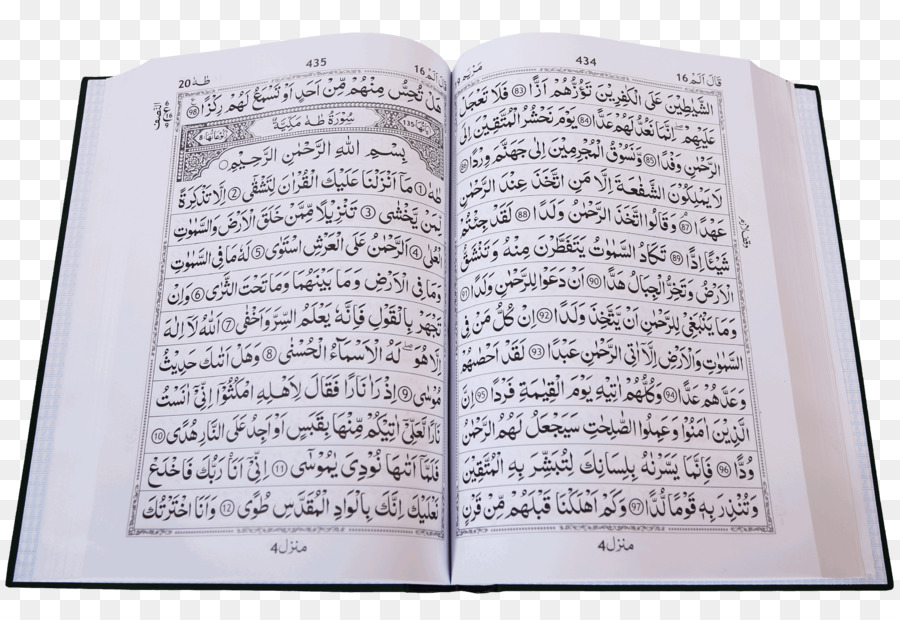 قَالَ اَلَمْ 16
434
مَرْيَم
الشَّيٰطِيْنَ عَلَى الْكٰفِرِيْنَ تَؤُزُّهُمْ اَزًّا ﴿83﴾ فَلَا تَعْجَلْ
عَلَيْهِمْ ؕ اِنَّمَا نَعُدُّ لَهُمْ عَدًّا ﴿84﴾ يَوْمَ نَحْشُرُ الْمُتَّقِيْنَ اِلَى
الرَّحْمٰنِ وَفْدًا ﴿85﴾ وَّنَسُوْقُ الْمُجْرِمِيْنَ اِلٰى جَهَنَّمَ وِرْدًا ﴿86﴾
لَا يَمْلِكُوْنَ الشَّفٰعَةَ اِلَّا مَنِ اتَّخَذَ عِنْدَ الرَّحْمٰنِ
عَهْدًا ﴿87﴾ وَقَالُوا اتَّخَذَ الرَّحْمٰنُ وَلَدًا ﴿88﴾ لَقَدْ جِئْتُمْ
شَيْئًا اِدًّا ﴿89﴾ تَكَادُ السَّمٰوٰتُ يَتَفَطَّرْنَ مِنْهُ وَتَنْشَقُّ
الْاَرْضُ وَتَخِرُّ الْجِبَالُ هَدًّا ﴿90﴾ اَنْ دَعَوْا لِلرَّحْمٰنِ وَلَدًا ﴿91﴾
وَمَا يَنْۢبَغِىْ لِلرَّحْمٰنِ اَنْ يَّتَّخِذَ وَلَدًا ﴿92﴾ اِنْ كُلُّ مَنْ فِى
السَّمٰوٰتِ وَالْاَرْضِ اِلَّاۤ اٰتِى الرَّحْمٰنِ عَبْدًا ﴿93﴾ لَقَدْ اَحْصٰهُمْ
وَعَدَّهُمْ عَدًّا ﴿94﴾ وَكُلُّهُمْ اٰتِيْهِ يَوْمَ الْقِيٰمَةِ فَرْدًا ﴿95﴾ اِنَّ
الَّذِيْنَ اٰمَنُوْا وَعَمِلُوا الصّٰلِحٰتِ سَيَجْعَلُ لَهُمُ الرَّحْمٰنُ
وُدًّا ﴿96﴾ فَاِنَّمَا يَسَّرْنٰهُ بِلِسَانِكَ لِتُبَشِّرَ بِهِ الْمُتَّقِيْنَ
وَتُنْذِرَ بِهٖ قَوْمًا لُّدًّا ﴿97﴾ وَكَمْ اَهْلَكْنَا قَبْلَهُمْ مِّنْ قَرْنٍ
منزل 4
قَالَ اَلَمْ 16
435
طٰهٰ 20
هَلْ تُحِسُّ مِنْهُمْ مِّنْ اَحَدٍ اَوْ تَسْمَعُ لَهُمْ رِكْزًا ﴿98﴾
اٰيَاتُهَا 135
سُوْرَةُ طٰهٰ مَكِّيَّةٌ
رُكُوْعَاتُهَا 8
بِسْمِ اللّٰهِ الرَّحْمٰنِ الرَّحِيْمِ
طٰهٰ ﴿1﴾ مَاۤ اَنْزَلْنَا عَلَيْكَ الْقُرْاٰنَ لِتَشْقٰٓى ﴿2﴾ اِلَّا تَذْكِرَةً
لِّمَنْ يَّخْشٰى ﴿3﴾ تَنْزِيْلًا مِّمَّنْ خَلَقَ الْاَرْضَ وَالسَّمٰوٰتِ
الْعُلٰى ﴿4﴾ اَلرَّحْمٰنُ عَلَى الْعَرْشِ اسْتَوٰى ﴿5﴾ لَهٗ مَا فِى السَّمٰوٰتِ
وَمَا فِى الْاَرْضِ وَمَا بَيْنَهُمَا وَمَا تَحْتَ الثَّرٰى ﴿6﴾ وَاِنْ
تَجْهَرْ بِالْقَوْلِ فَاِنَّهٗ يَعْلَمُ السِّرَّ وَاَخْفٰى ﴿7﴾ اَللّٰهُ لَاۤ اِلٰهَ
اِلَّا هُوَ ؕ لَهُ الْاَسْمَآءُ الْحُسْنٰى ﴿8﴾ وَهَلْ اَتٰىكَ حَدِيْثُ
مُوْسٰى ﴿9﴾ اِذْ رَاٰ نَارًا فَقَالَ لِاَهْلِهِ امْكُثُوْۤا اِنِّىْۤ اٰنَسْتُ
نَارًا لَّعَلِّىْۤ اٰتِيْكُمْ مِّنْهَا بِقَبَسٍ اَوْ اَجِدُ عَلَى النَّارِ هُدًى ﴿10﴾
فَلَمَّاۤ اَتٰىهَا نُوْدِىَ يٰمُوْسٰى ﴿11﴾ اِنِّىْۤ اَنَا رَبُّكَ فَاخْلَعْ
نَعْلَيْكَ ۚ اِنَّكَ بِالْوَادِ الْمُقَدَّسِ طُوًى ﴿12﴾ وَاَنَا اخْتَرْتُكَ
منزل 4